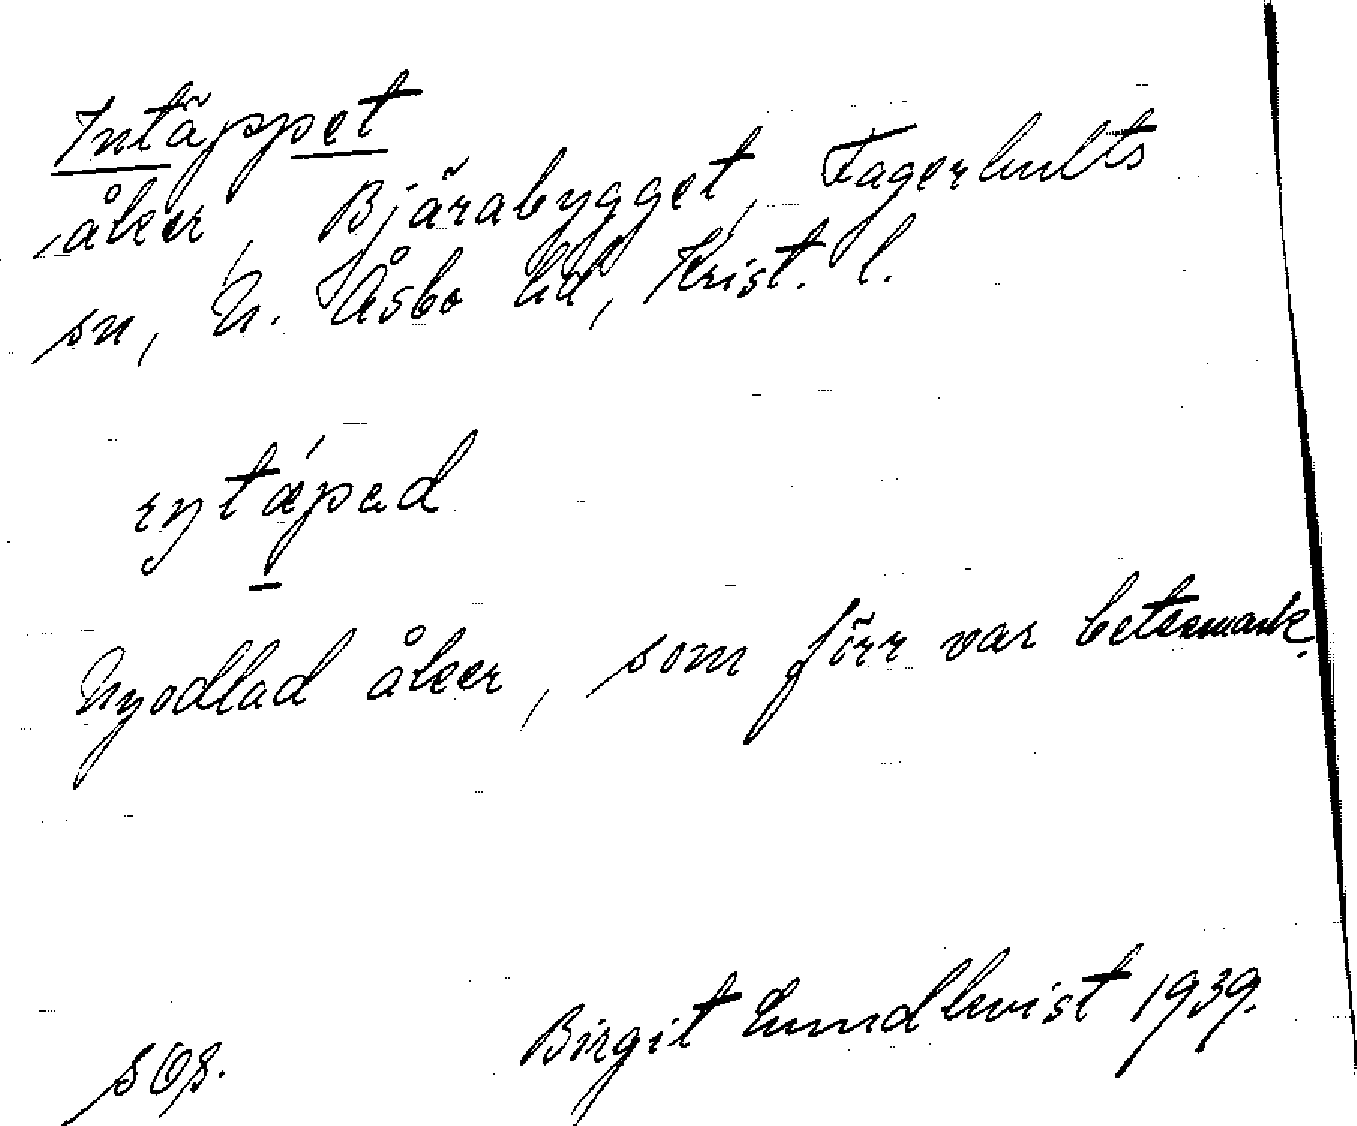 Intäppet
åker, Bjärabygget, Fagerhults
sn, N. Åsbo hd, Krist. l.
Nyodlad åker, som förr var betesmark.
Birgit Lundkvist 1939.